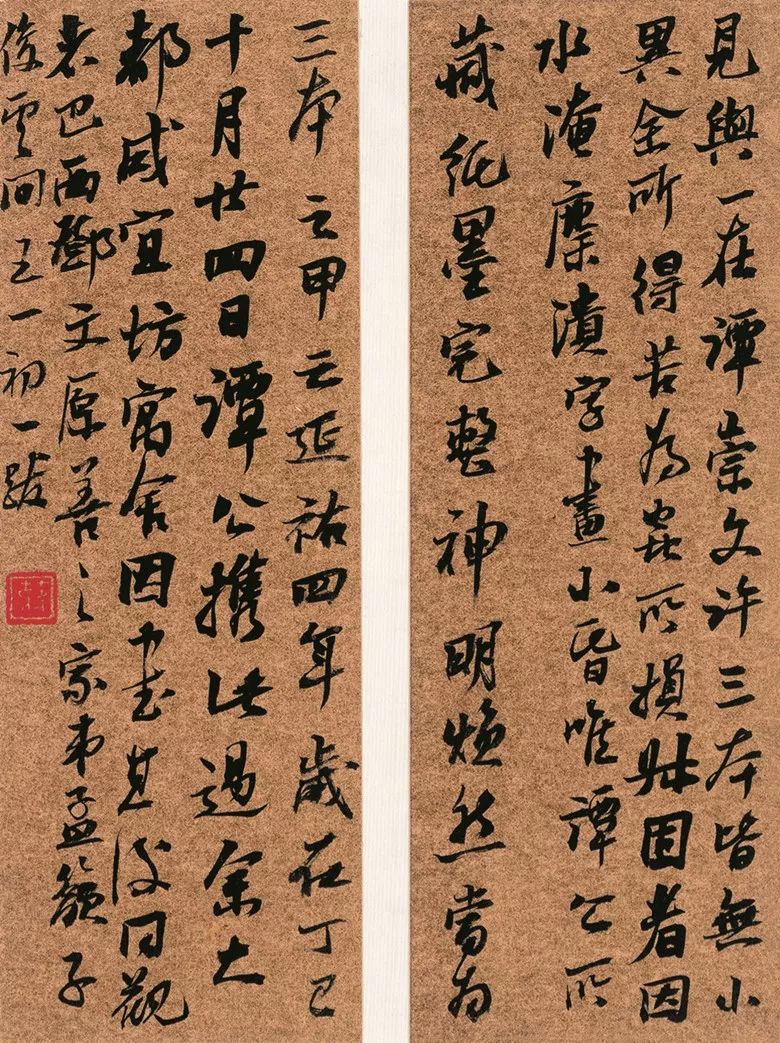 見與一在譚崇文許三本皆無小
異余所得苦為虫所損因者因
水淹糜漬字畫小昏唯譚公所
藏紙墨完整神明煥然當為
三本之甲云延祐四年歲在丁巳
十月廿四日譚公携此過余大
都咸宜坊寓舍因書其後同觀
者巴西鄧文原善之家弟孟籲子
俊雲間王一初一跋